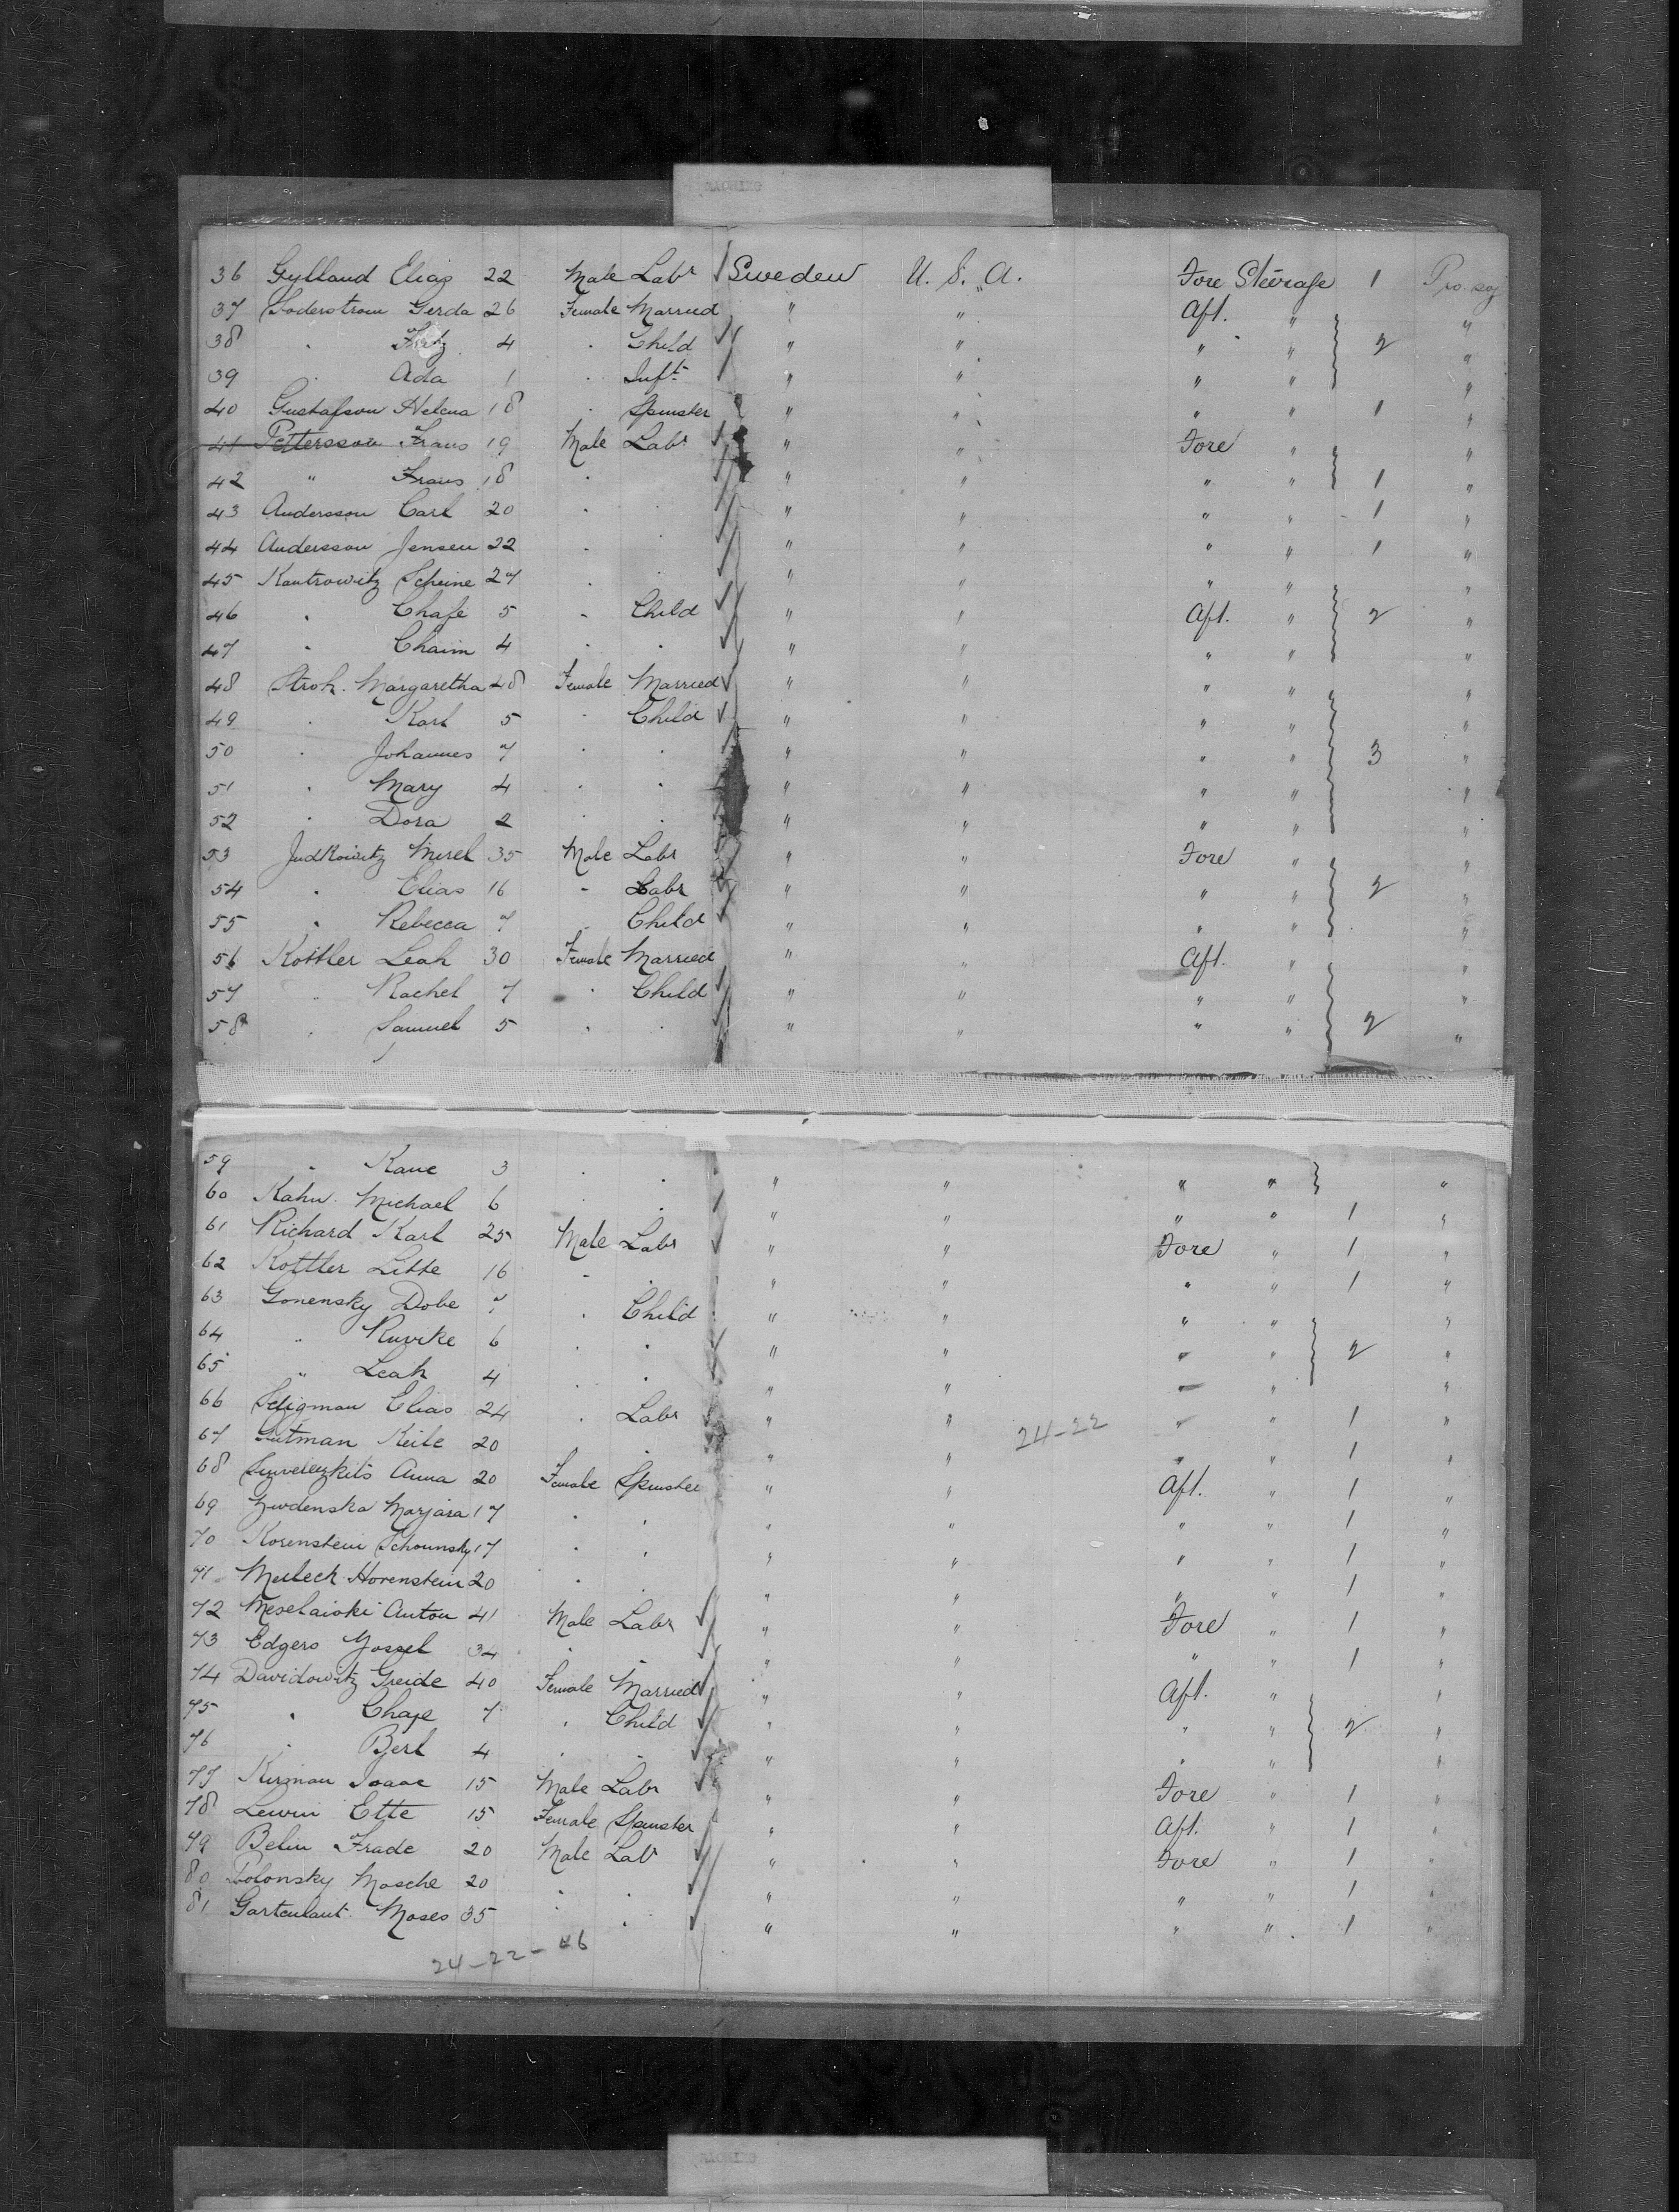 36 Gylland Elias 22 Male Labr Sweden U. S. A. Fore Steerage 1 Pro. sg
37 Soderstrom Gerda 26 Female Married " " Aft. " "
38 . Fritz 4 . Child " " " " 2 "
39 . Ada 1 . Inft " " " " "
40 Gustafson Helena 18 . Spinster " " " " 1 "
41 Pettersson Frans 19 Male Labr " " Fore " "
42 " Frans 18 . " " " " 1 "
43 Andersson Carl 20 . . " " " " 1 "
44 Andersson Jensen 22 . . " " " " 1 "
45 Kantrowitz Scheine 27 . . " " " " "
46 . Chafe 5 . Child " " Aft. " 2 "
47 . Chaim 4 . . " " " " "
48 Stroh. Margaretha 28 Female Married " " " " "
49 . Karl 5 . Child " " " " "
50 . Johannes 7 . . " " " " 3 "
51 . Mary 4 . . " " " " "
52 . Dora 2 . . " " " " "
53 Judkowitz Mirel 35 Male Labr " " Fore " "
54 . Elias 16 - Labr " " " " 2 "
55 . Rebecca 7 . Child " " " " "
56 Kottler Leah 30 Female Married " " Aft. " "
57 . Rachel 7 . Child " " " " "
58 . Samuel 5 . . " " " " 2 "
59 . Kane 3 . . " " " " "
60 Kahn. Michael 6 . . " " " " 1 "
61 Richard Karl 25 Male Labr " " Fore " 1 "
62 Kottler Litte 16 . . " " " " 1 "
63 Gonensky Dobe 7 . Child " " " " "
64 " Ruvike 6 . . " " " " 2 "
65 " Leah 4 . . " " " " "
66 Seligman Elias 24 . Labr " " " " 1 "
24-22
67 Gutman Keile 20 . " " " " 1
68 Anna 20 Female Spinster " " Aft. " 1 "
69 Zwdenska Marjasa 17 . . " " " " 1 "
70 Korenstein Schounsky 17 . . " " " " 1 "
71 Meileck Horenstein 20 . . " " " " 1 "
72 Meselaioki Anton 41 Male Labr " " Fore " 1 "
73 Edgero Yossel 34 . . " " " " 1 "
74 Davidowitz Greide 40 Female Married " " Aft. " "
75 . Chaje 7 . Child " " " " 2 "
76 . Berl 4 . . " " " " "
77 Kirman Isaac 15 Male Labr " " Fore " 1 "
78 Lewin Ette 15 Female Spinster " " Aft. " 1 "
79 Belin Frade 20 Male Labr " " Fore " 1 "
80 Polonsky Mosche 20 . . " " " " 1 "
81 Gartenlaut. Moses 35 . . " " " " 1 "
24-22-46